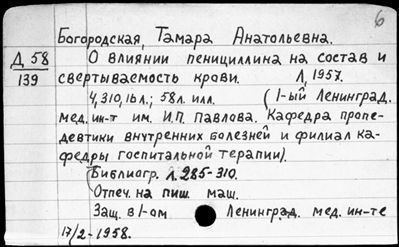 6
Богородская, Тамара Анатольевна.
Д 58
139
О влиянии пенициллина на состав и
свертываемость крови. Л, 1957.
4,310,16 л.; 58 л. илл. (1-ый Ленинград.
мед. ин-т им. И.П. Павлова. Кафедра пропе-
девтики внутренних болезней и филиал ка-
федры госпитальной терапии).
(Библиогр. л. 285-310.
Отпеч. на пиш. маш.
Защ. в 1-ом Ленинград. мед. ин-те
17/2-1958.